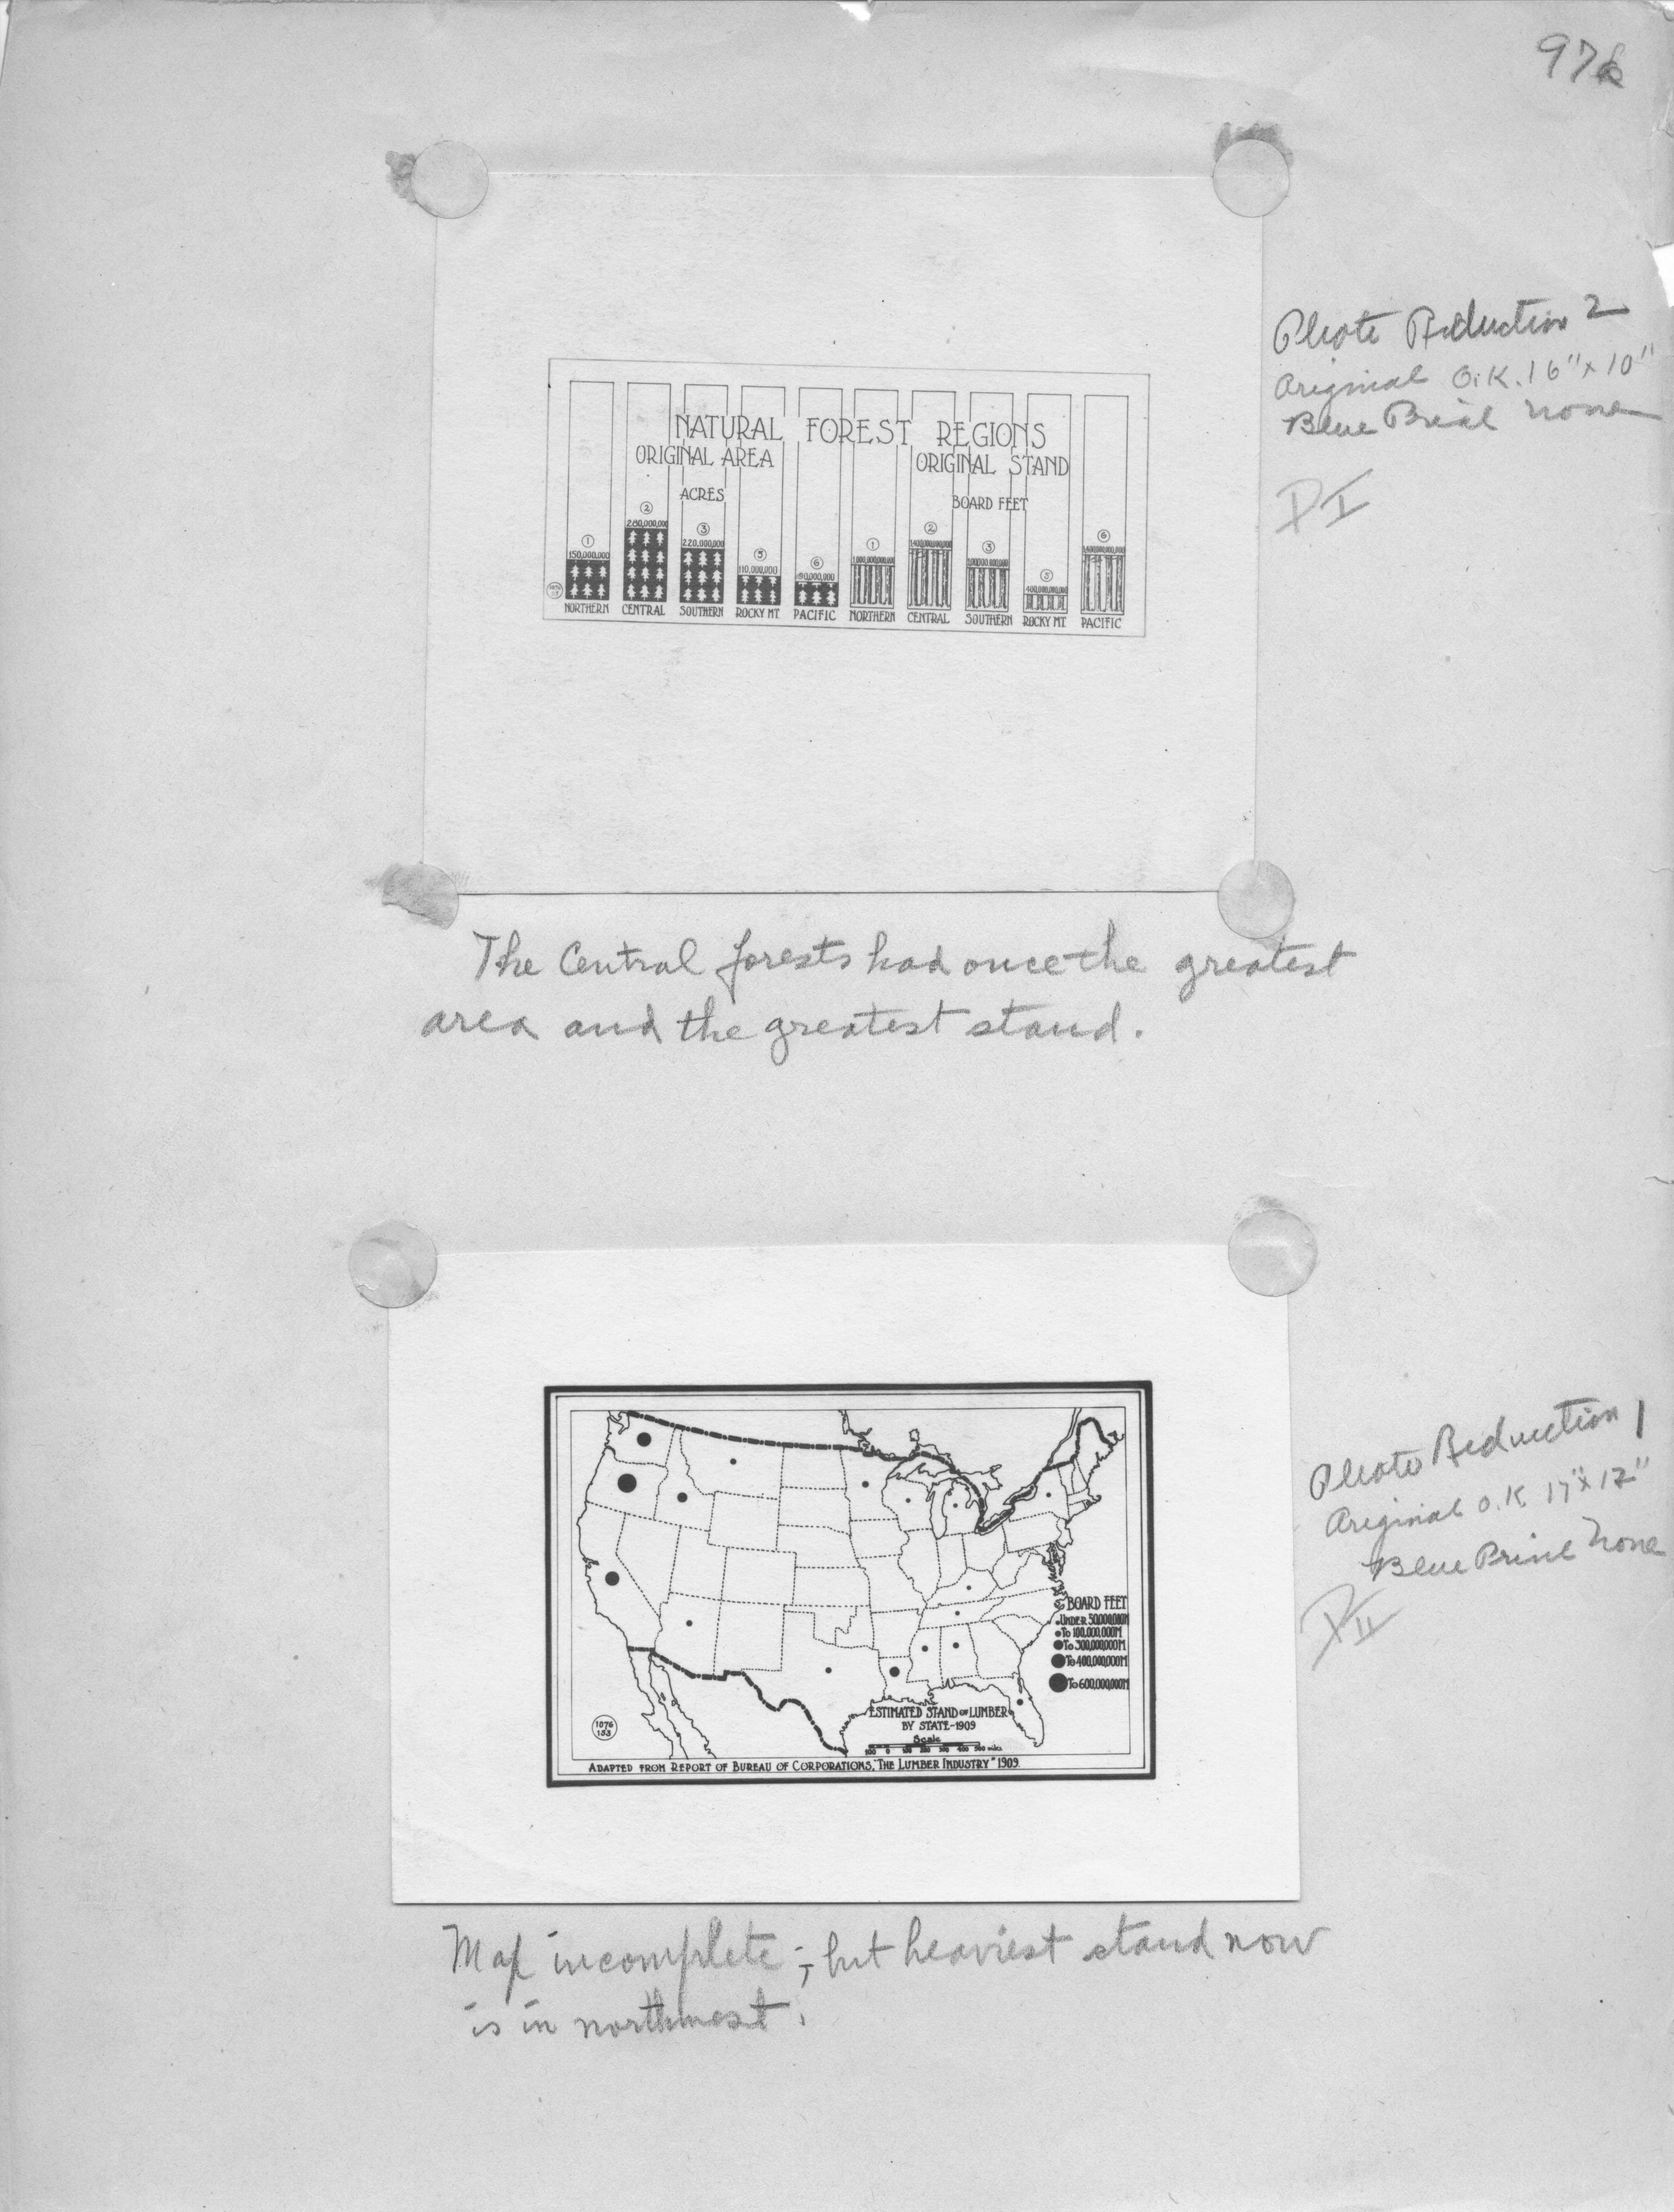 976
Photo Reduction 2
Original O.K. 16" x 10"
Blue Print none
P I
NATURAL FOREST REGIONS
ORIGINAL AREA
ORIGINAL STAND
ACRES
BOARD FEET
① ② ③ ⑤ ⑥ ① ② ③ ⑤ ⑥
150,000,000 280,000,000 220,000,000 110,000,000 90,000,000 1,000,000,000,000 1,400,000,000,000 1,000,000,000,000 400,000,000,000 1,400,000,000,000
NORTHERN CENTRAL SOUTHERN ROCKY MT. PACIFIC NORTHERN CENTRAL SOUTHERN ROCKY MT. PACIFIC
The Central forests had once the greatest
area and the greatest stand.
Photo Reduction 1
Original O.K. 17" x 12"
Blue Print none
P II
BOARD FEET
UNDER 50,000,000M
TO 100,000,000M
TO 300,000,000M
TO 400,000,000M
TO 600,000,000M
ESTIMATED STAND OF LUMBER
BY STATE-1909
Scale
100 0 100 200 300 400 500 miles
1076
153
ADAPTED FROM REPORT OF BUREAU OF CORPORATIONS, "THE LUMBER INDUSTRY" 1909.
Map incomplete; but heaviest stand now
is in northwest.